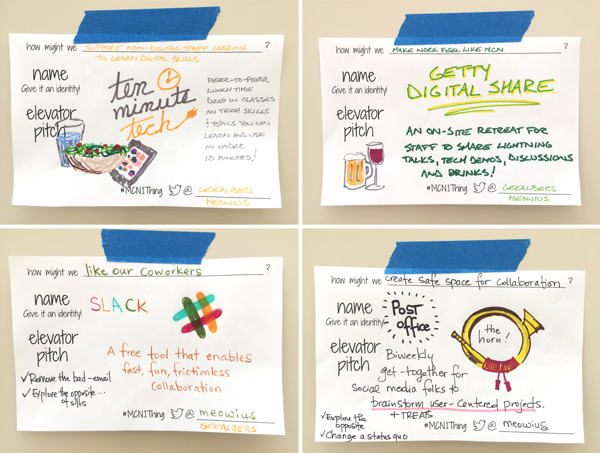 how might we SUPPORT NON-DIGITAL STAFF LOOKING ?
TO LEARN DIGITAL SKILLS
name
Give it an identity!
ten
minute
tech
elevator
pitch
PEER-TO-PEER,
LUNCH TIME
DROP IN CLASSES
ON TECH SKILLS
& TOPICS YOU CAN
LEARN AND USE
IN UNDER
10 MINUTES!
#MCN1Thing @ GEEALBERS
MEOWIUS
how might we MAKE WORK FEEL LIKE MCN ?
name
Give it an identity!
GETTY
DIGITAL SHARE
elevator
pitch
AN ON-SITE RETREAT FOR
STAFF TO SHARE LIGHTNING
TALKS, TECH DEMOS, DISCUSSIONS
AND DRINKS!
#MCN1Thing @ GEEALBERS
MEOWIUS
how might we like our coworkers ?
name
Give it an identity!
SLACK
elevator
pitch
A free tool that enables
fast, fun, frictionless
collaboration
✓Remove the bad-email
✓Explore the opposite...
of silos
#MCN1Thing @ meowius
GEEALBERS
how might we create safe space for collaboration ?
name
Give it an identity!
POST
office
the
horn!
elevator
pitch
Biweekly
get-together for
social media folks to
brainstorm user-centered projects.
+ TREATS
✓Explore the
opposite
✓Change a status quo
#MCN1Thing @ meowius